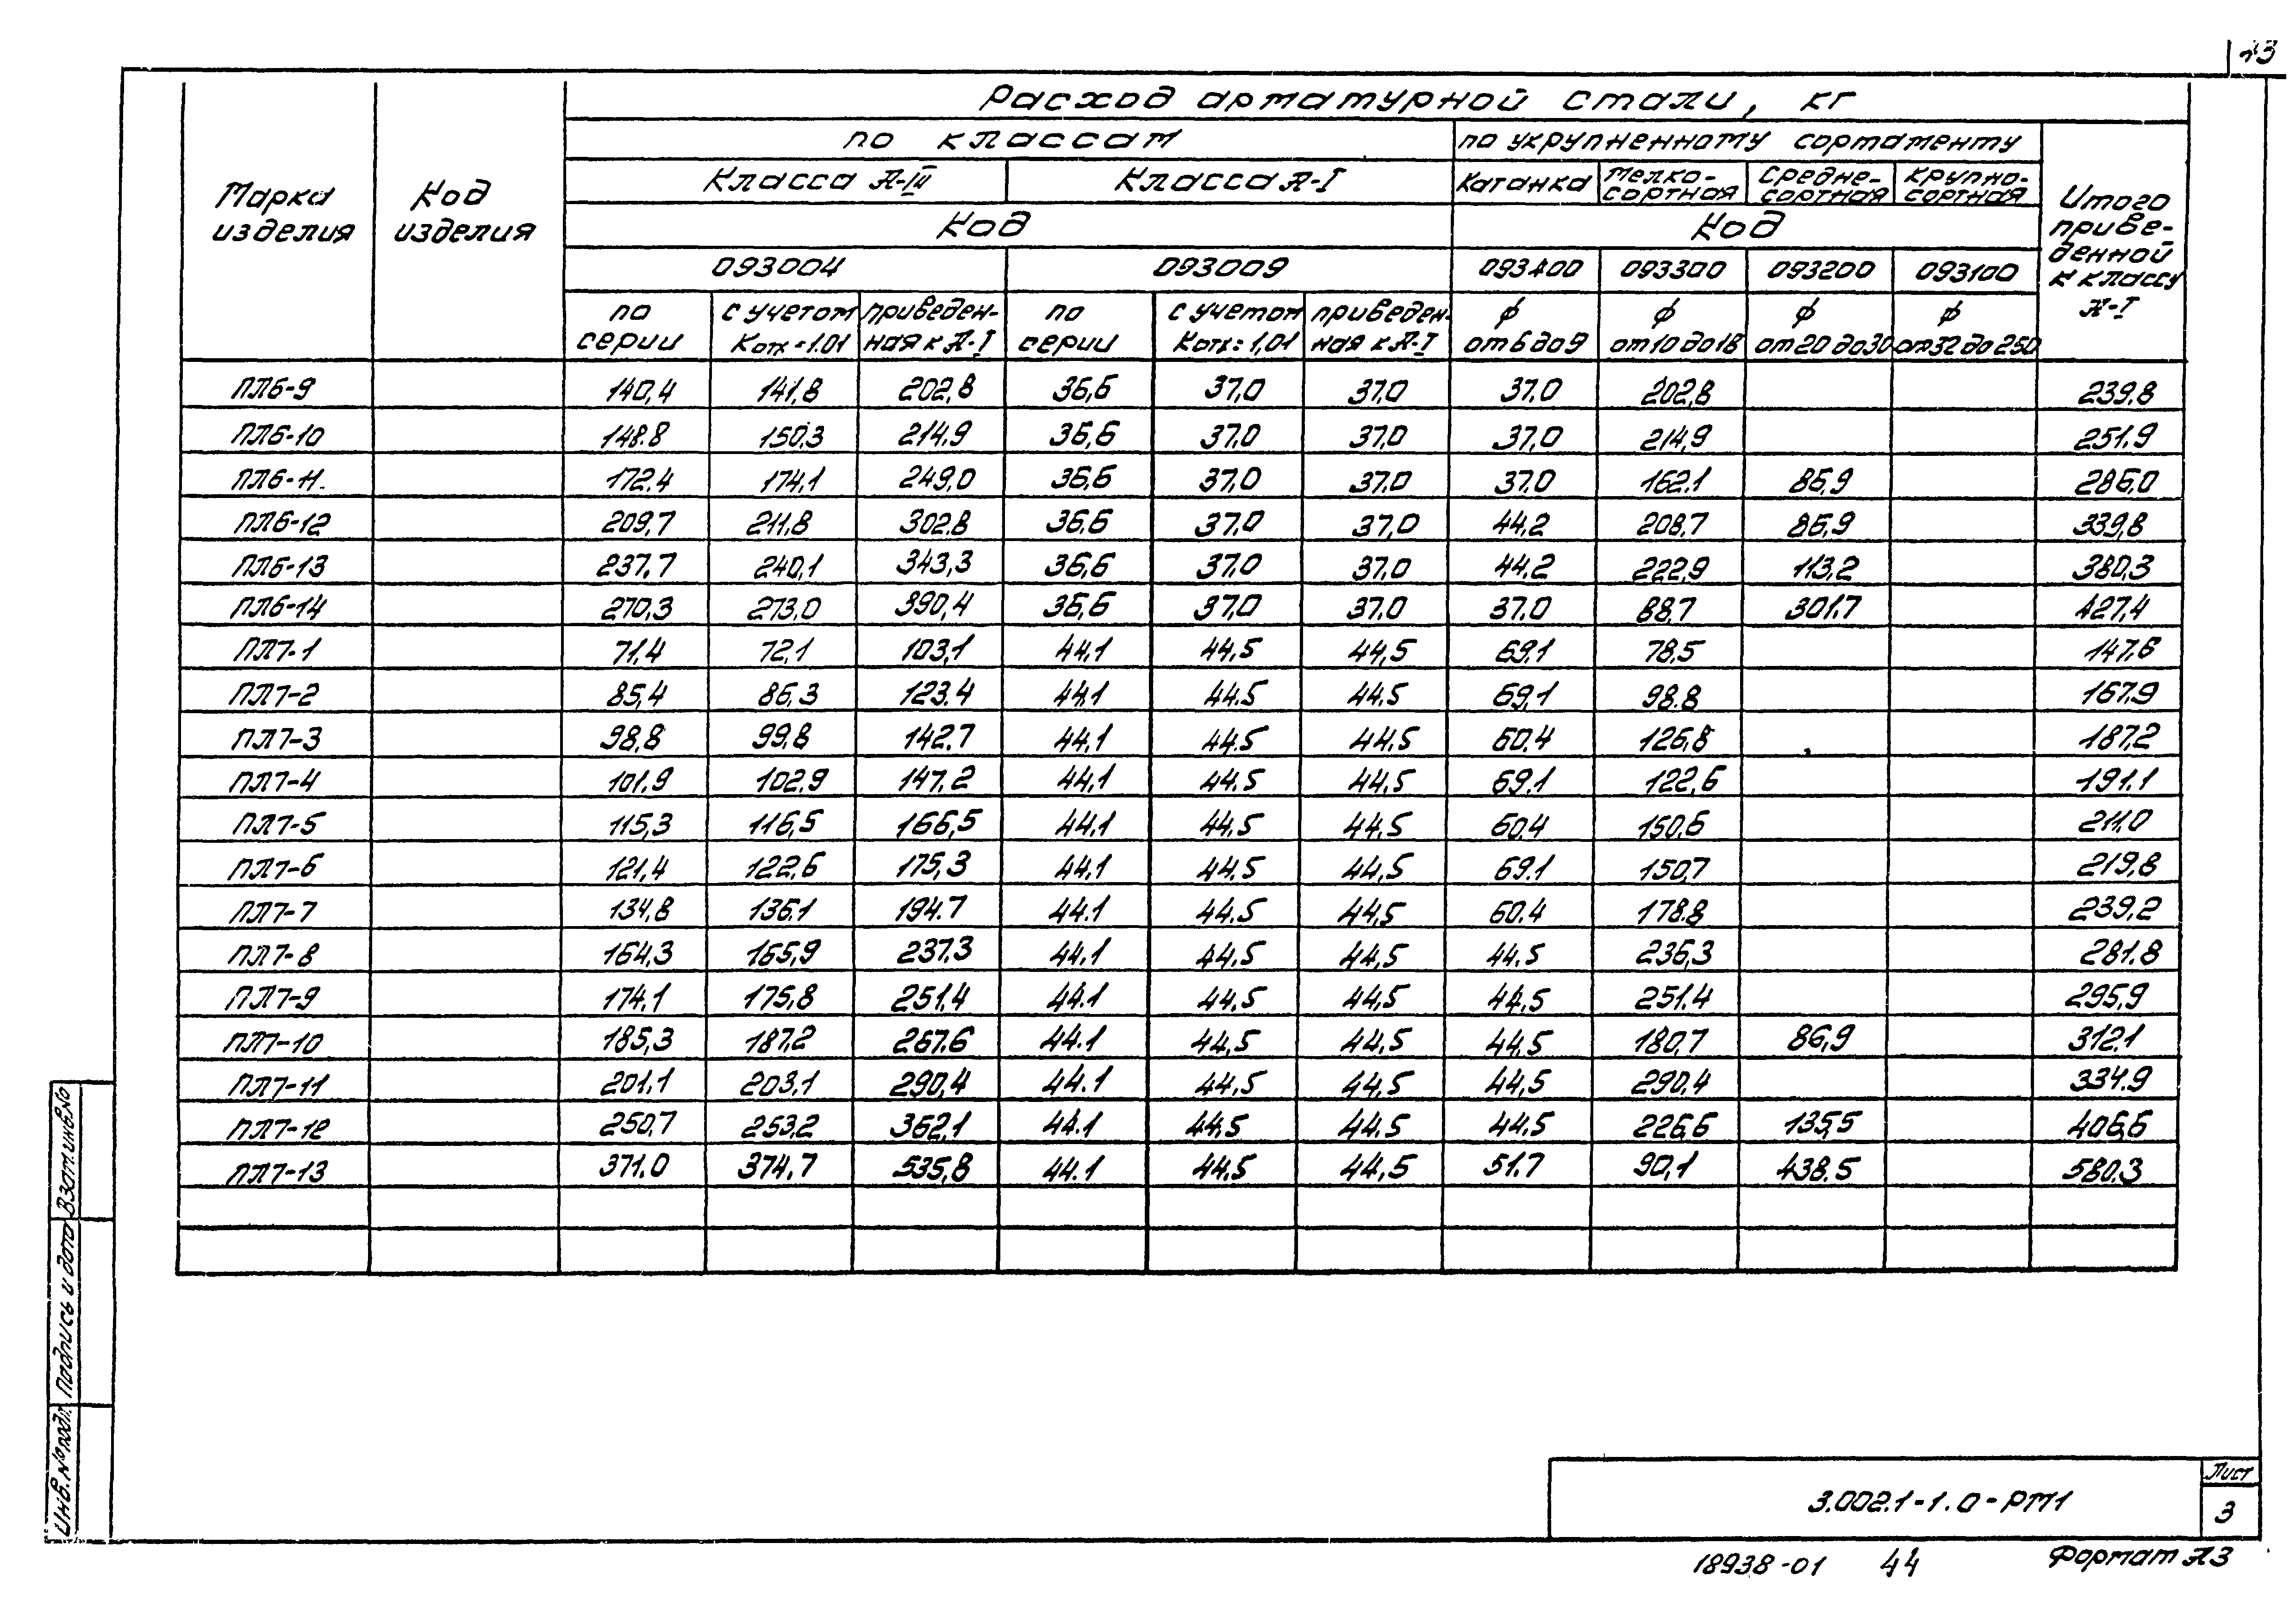 43
Расход арматурной стали, кг
по классам
по укрупненному сортаменту
Марка изделия
Код изделия
Класса А-III
Класса А-I
Катанка
Мелко-сортная
Средне-сортная
Крупно-сортная
Итого приве-денной к классу А-I
Код
Код
093004
093009
093400
093300
093200
093100
по серии
с учетом Котх=1.01
приведен-ная к А-I
по серии
с учетом Котх=1,01
приведен-ная к А-I
ф от 6 до 9
ф от 10 до 18
ф от 20 до 30
ф от 32 до 250
ПЛ6-9 140,4 141,8 202,8 36,6 37,0 37,0 37.0 202,8 239,8
ПЛ6-10 148.8 150,3 214,9 36,6 37,0 37,0 37,0 214,9 251.9
ПЛ6-11 172.4 174,1 249,0 36,6 37,0 37,0 37,0 162.1 86,9 286,0
ПЛ6-12 209,7 211,8 302.8 36,6 37,0 37,0 44,2 208,7 86,9 339,8
ПЛ6-13 237,7 240,1 343,3 36,6 37,0 37.0 44,2 222,9 113,2 380,3
ПЛ6-14 270,3 273,0 390,4 36,6 37,0 37.0 37.0 88,7 301,7 427,4
ПЛ7-1 71,4 72,1 103,1 44.1 44,5 44,5 69,1 78,5 147,6
ПЛ7-2 85,4 86,3 123.4 44,1 44.5 44,5 69,1 98.8 167,9
ПЛ7-3 98,8 99,8 142.7 44,1 44.5 44,5 60.4 126,8 187,2
ПЛ7-4 101.9 102,9 147.2 44,1 44.5 44,5 69.1 122,6 191.1
ПЛ7-5 115,3 116,5 166,5 44.1 44,5 44.5 60.4 150,6 211,0
ПЛ7-6 121,4 122,6 175,3 44.1 44,5 44,5 69.1 150,7 219,8
ПЛ7-7 134,8 136,1 194.7 44.1 44.5 44,5 60.4 178.8 239,2
ПЛ7-8 164,3 165,9 237.3 44.1 44,5 44,5 44.5 236,3 281.8
ПЛ7-9 174.1 175,8 251,4 44.1 44,5 44,5 44,5 251.4 295,9
ПЛ7-10 185,3 187,2 267.6 44.1 44,5 44,5 44,5 180,7 86,9 312.1
ПЛ7-11 201,1 203,1 290,4 44.1 44,5 44,5 44,5 290.4 334.9
ПЛ7-12 250,7 253,2 362,1 44.1 44,5 44.5 44,5 226,6 135,5 406,6
ПЛ7-13 371.0 374,7 535,8 44.1 44.5 44,5 51.7 90,1 438.5 580.3
Инв.№подл. Подпись и дата Взам.инв.№
3.002.1-1.0-РМ1
Лист
3
18938-01 44 Формат А3